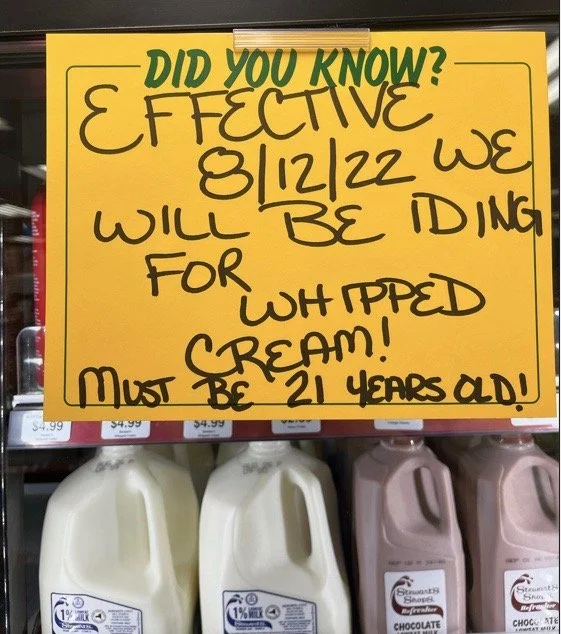 DID YOU KNOW?
EFFECTIVE
8/12/22 WE
WILL BE IDING
FOR
WHIPPED
CREAM!
MUST BE 21 YEARS OLD!
$4.99 $4.99 $4.99
1% MILK 1% MILK
Stewart's Shops Stewart's
Refresher Refresher
CHOCOLATE